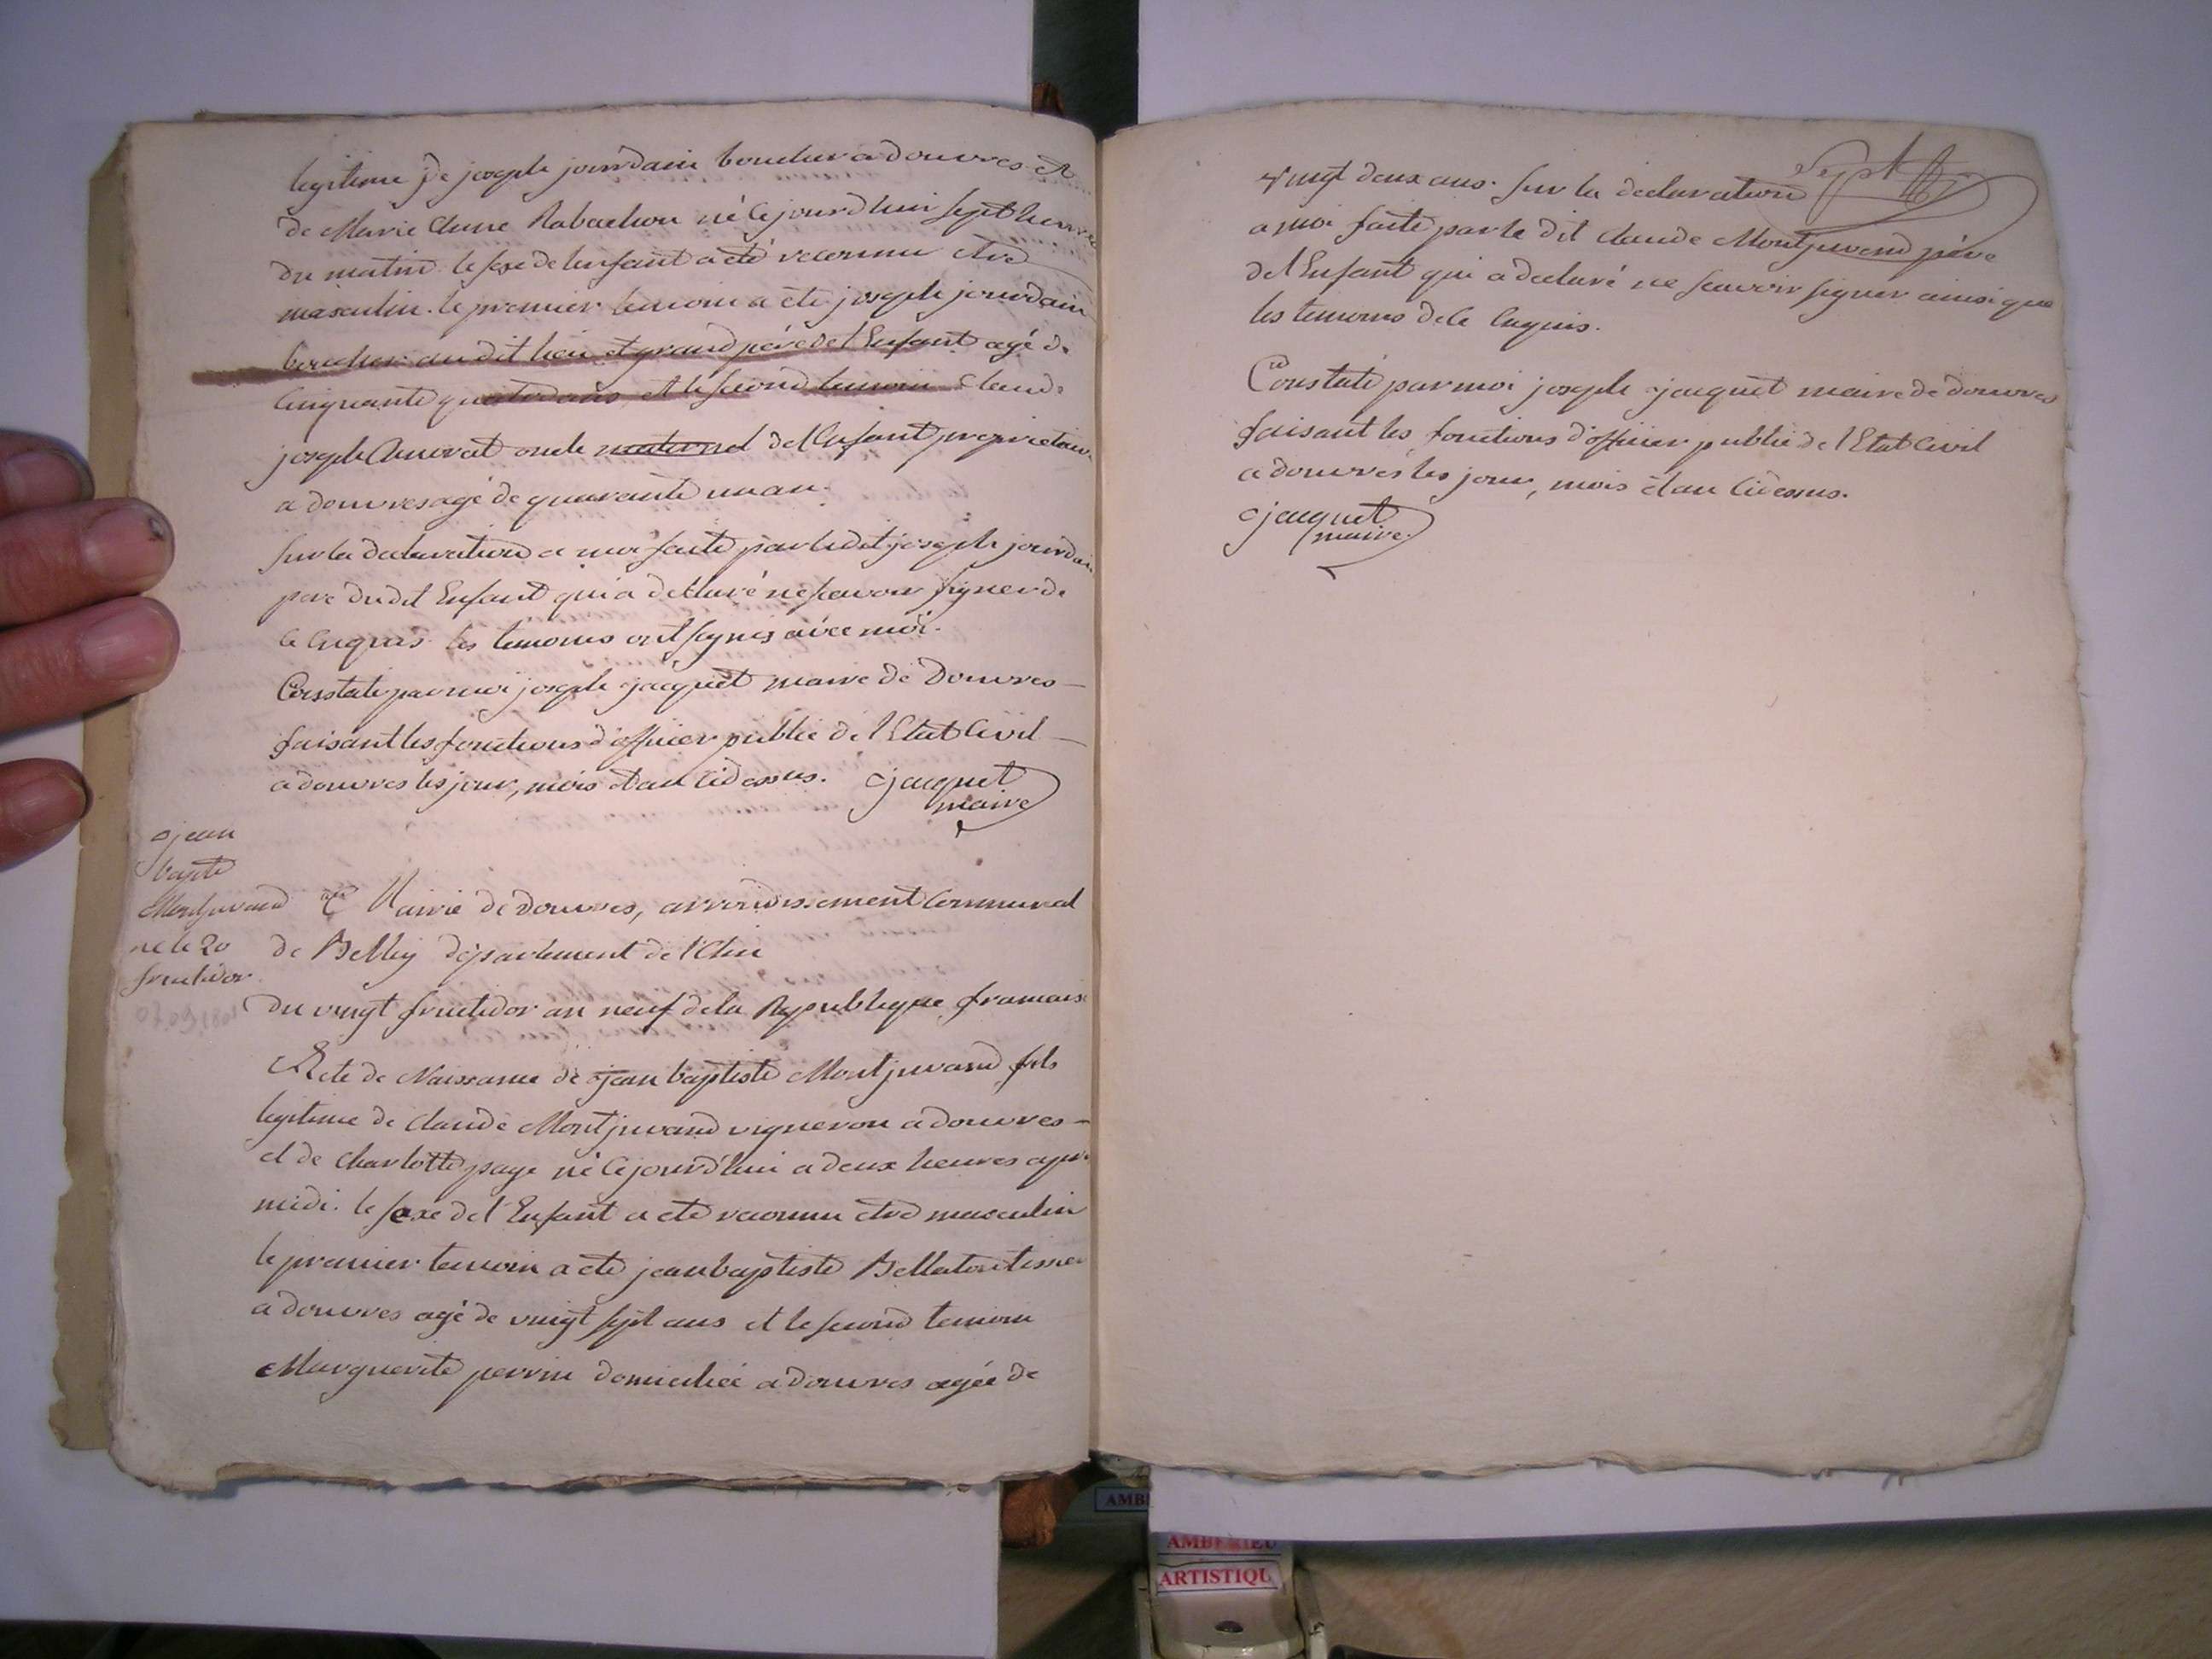 legitime de joseph jourdain boucher a douvres et
de Marie Anne Rabachon né cejourdhui sept heures
du matin. le sexe de lenfant a été reconnu etre
masculin. le premier temoin a été joseph jourdain
boucher audit lieu et grand pére de l Enfant agé de
cinquante quatre ans et le second temoin Claude
joseph oncle maternel de l Enfant proprietaire
a douvres agé de quarante un an.
Sur la declaration a moi faite par ledit joseph jourdain
pere dudit Enfant qui a declaré ne scavoir signer de
ce enquis. les temoins ont signés avec moi.
Constaté par moi joseph jacquet maire de Douvres
faisant les fonctions d'officier public de l Etat Civil
a douvres les jour, mois et an cidessus. jacquet
maire
jean
bapte
Montjuvand
né le 20
fructidor
Mairie de douvres, arrondissement Communal
de Belley département de l'Ain
du vingt fructidor an neuf de la Republique francaise
Acte de Naissance de jean baptiste Montjuvand fils
legitime de claude Montjuvand vigneron a douvres
et de charlotte page né cejourd'hui a deux heures apres
midi. le sexe de l Enfant a été reconnu etre masculin
le premier temoin a été jean baptiste Bellaton tissier
a douvres agé de vingt sept ans et le second temoin
Marguerite perrin domiciliée a douvres agée de
Sept
vingt deux ans. Sur la declaration
a moi faite par le dit claude Montjuvend pére
de l Enfant qui a declaré ne scavoir signer ainsi que
les temoins de ce enquis.
Constaté par moi joseph jacquet maire de douvres
faisant les fonctions d'officier public de l Etat Civil
a douvres les jour, mois et an cidessus.
jacquet
maire
AMB
AMBERIEU
ARTISTIQU